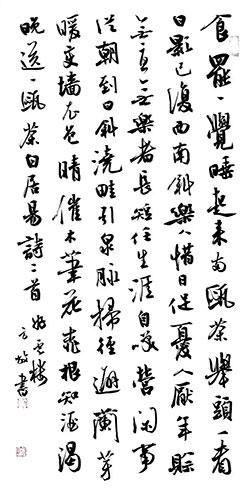 食罷一覺睡起來兩甌茶舉頭看
日影已復西南斜樂人惜日促憂人厭年賒
無憂無樂者長短任生涯自哂營閑事
從朝到日斜澆畦引泉脈掃徑避蘭芽
暖變牆衣色晴催木筆花桃根知酒渴
晚送一甌茶白居易詩二首
書